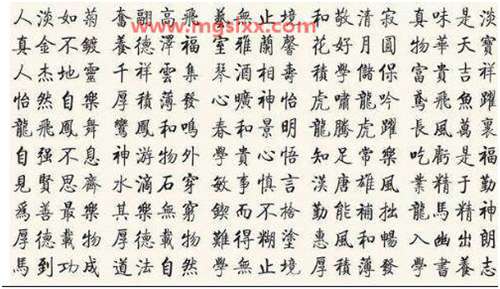 www.mgsixx.com
人淡如菊 奮翮高飛 藝無止境 和敬清寂 真味是淡
真金不鍍 養德澤福 室雅蘭馨 花好月圓 物華天寶
人杰地靈 千祥雲集 琴酒相壽 積學儲保 富貴吉祥
怡然自樂 厚積薄發 心曠神怡 虎嘯龍吟 鳶飛魚躍
龍飛鳳舞 鸞鳳和鳴 春和景明 龍騰虎躍 長風萬裏
自强不息 神游物外 學貴心悟 知足常樂 吃虧是福
見賢思齊 水滴石穿 敏事慎言 漢唐雄風 業精于勤
爲善最樂 其樂無窮 鍥而不捨 勤能補拙 龍馬精神
厚德載物 厚德載物 難得糊塗 惠風和暢 入幽出朗
馬到功成 道法自然 學無止境 厚積薄發 學書養志